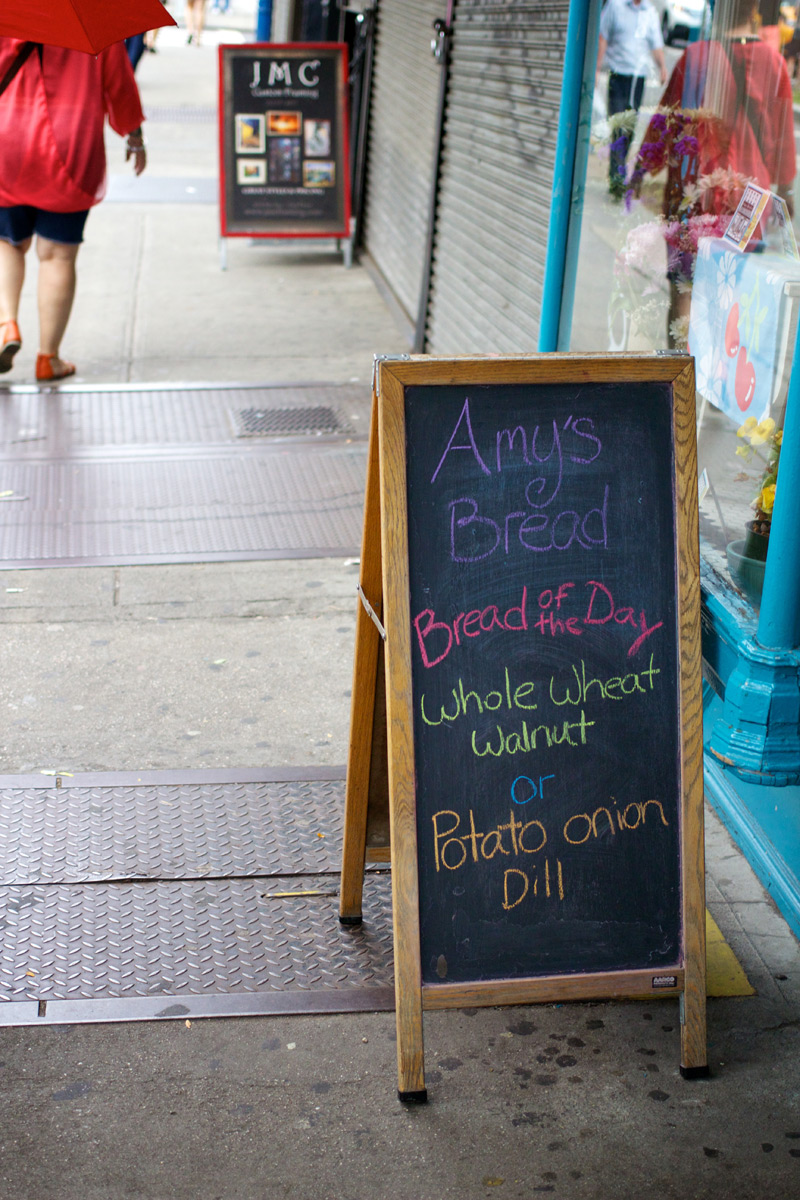 JMC
Amy's
Bread
Bread of the Day
Whole Wheat
Walnut
or
Potato onion
Dill
AARCO